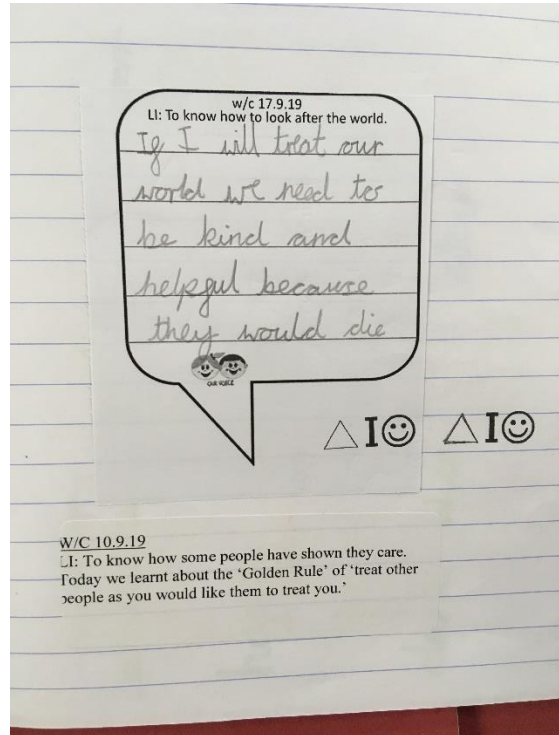 w/c 17.9.19
LI: To know how to look after the world.
If I will treat our
world we need to
be kind and
helpful because
they would die
OUR VOICE
I I
W/C 10.9.19
LI: To know how some people have shown they care.
Today we learnt about the ‘Golden Rule’ of ‘treat other
people as you would like them to treat you.’